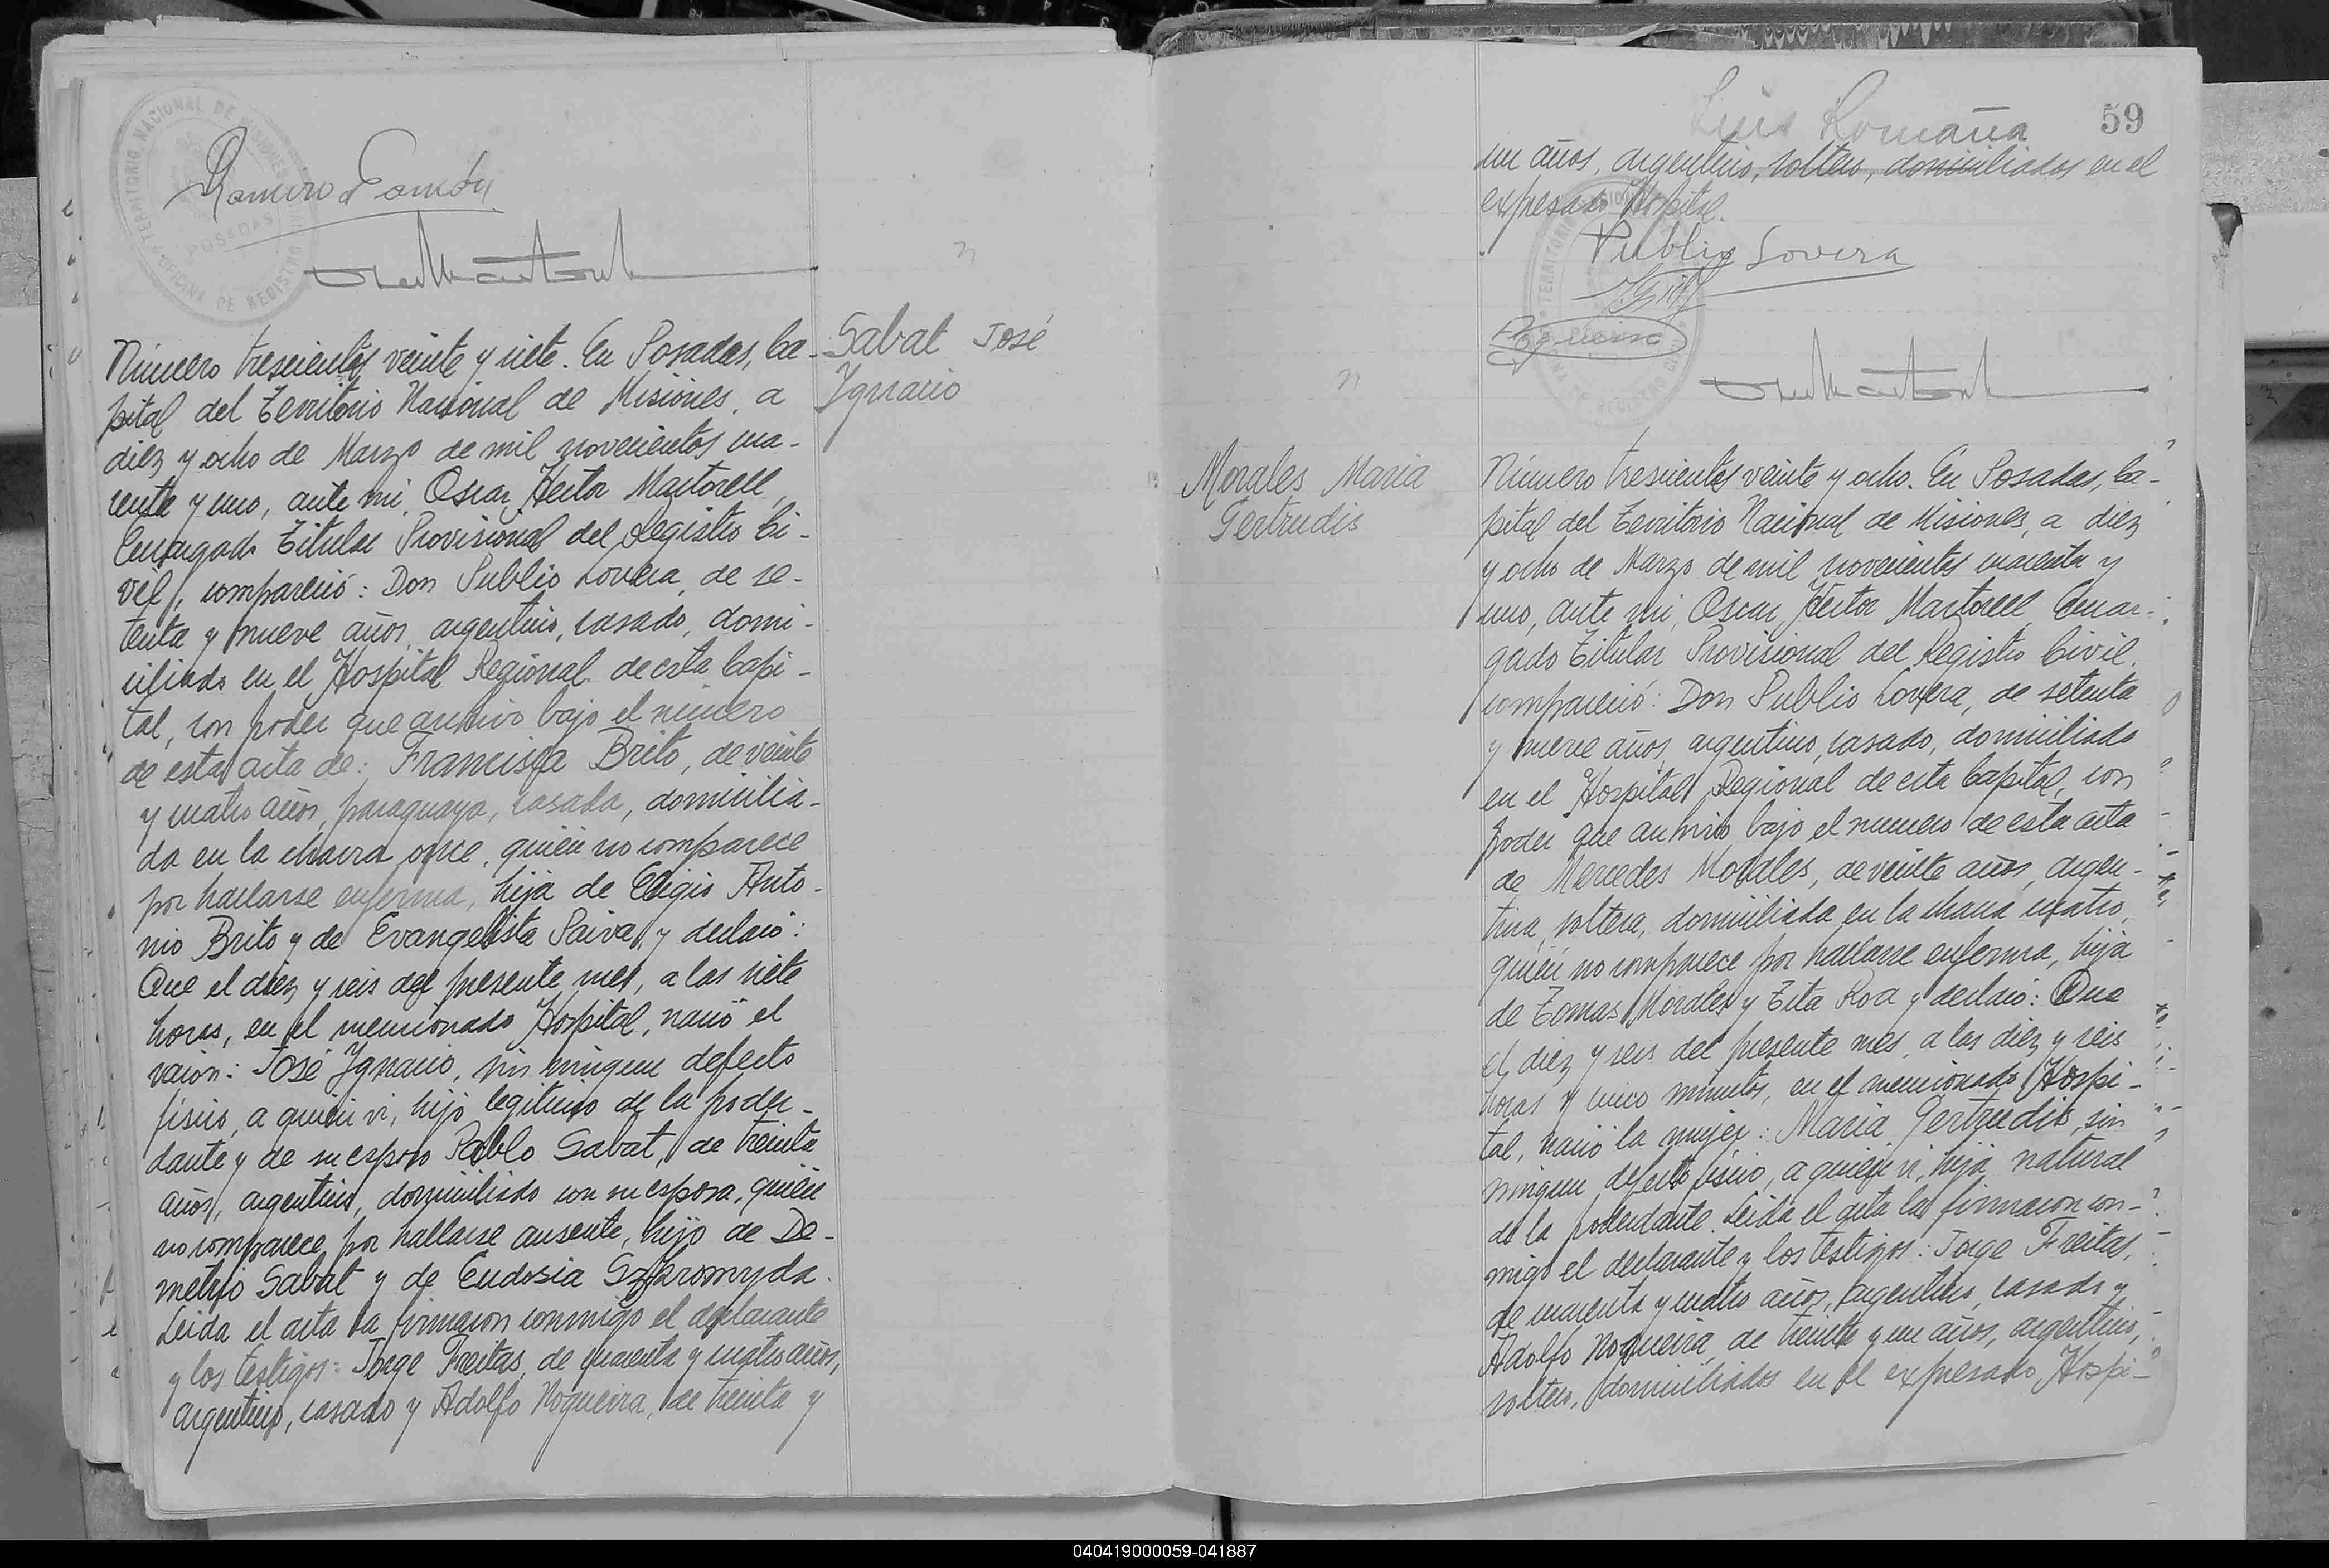 TERRITORIO NACIONAL DE MISIONES
POSADAS
OFICINA DE REGISTRO
Número trescientos veinte y siete. En Posadas, Ca-
pital del Territorio Nacional de Misiones, a
diez y ocho de Marzo de mil novecientos cua-
renta y uno, ante mi, Oscar Hector Martorell,
Encargado Titular Provisional del Registro Ci-
vil, compareció: Don Publio Lovera, de se-
tenta y nueve años, argentino, casado, domi-
ciliado en el Hospital Regional de esta Capi-
tal, con poder que archivo bajo el número
de esta acta de: Francisca Brito, de veinte
y cuatro años, paraguaya, casada, domicilia-
da en la chacra once, quién no comparece
por hallarse enferma, hija de Eligio Anto-
nio Brito y de Evangelista Paiva, y declaró:
Que el diez y seis del presente mes, a las siete
horas, en el mencionado Hospital, nació el
varón: José Ignacio, sin ningun defecto
físico, a quién vi, hijo legitimo de la poder-
dante y de su esposo Pablo Sabat, de treinta
años, argentino, domiciliado con su esposa, quién
no comparece por hallarse ausente, hijo de De-
metrio Sabat y de Eudosia Szkromyda.
Leida el acta la firmaron conmigo el declarante
y los testigos: Jorge Freitas, de cuarenta y cuatro años,
argentino, casado y Adolfo Noqueira, de treinta y
Sabat José
Ignacio
59
Luis Romaña
un años, argentino, soltero, domiciliados en el
expresado Hospital.
Publio Lovera
Morales Maria
Gertrudis
Número trescientos veinte y ocho. En Posadas, Ca-
pital del Territorio Nacional de Misiones, a diez
y ocho de Marzo de mil novecientos cuarenta y
uno, ante mi, Oscar Hector Martorell, Encar-
gado Titular Provisional del Registro Civil,
compareció: Don Publio Lovera, de setenta
y nueve años, argentino, casado, domiciliado
en el Hospital Regional de esta Capital, con
poder que archivo bajo el numero de esta acta
de Mercedes Morales, de veinte años, argen-
tina, soltera, domiciliada en la chacra cuatro,
quién no comparece por hallarse enferma, hija
de Tomas Morales y Tita Roa y declaró: Que
el diez y seis del presente mes, a las diez y seis
horas y cinco minutos, en el mencionado Hospi-
tal, nació la mujer: Maria Gertrudis, sin
ningun defecto físico, a quién vi, hija natural
de la poderdante. Leida el acta la firmaron con-
migo el declarante y los testigos: Jorge Freitas,
de cuarenta y cuatro años, argentino, casado y
Adolfo Noqueira de treinta y un años, argentino,
soltero, domiciliados en el expresado Hospi-
040419000059-041887